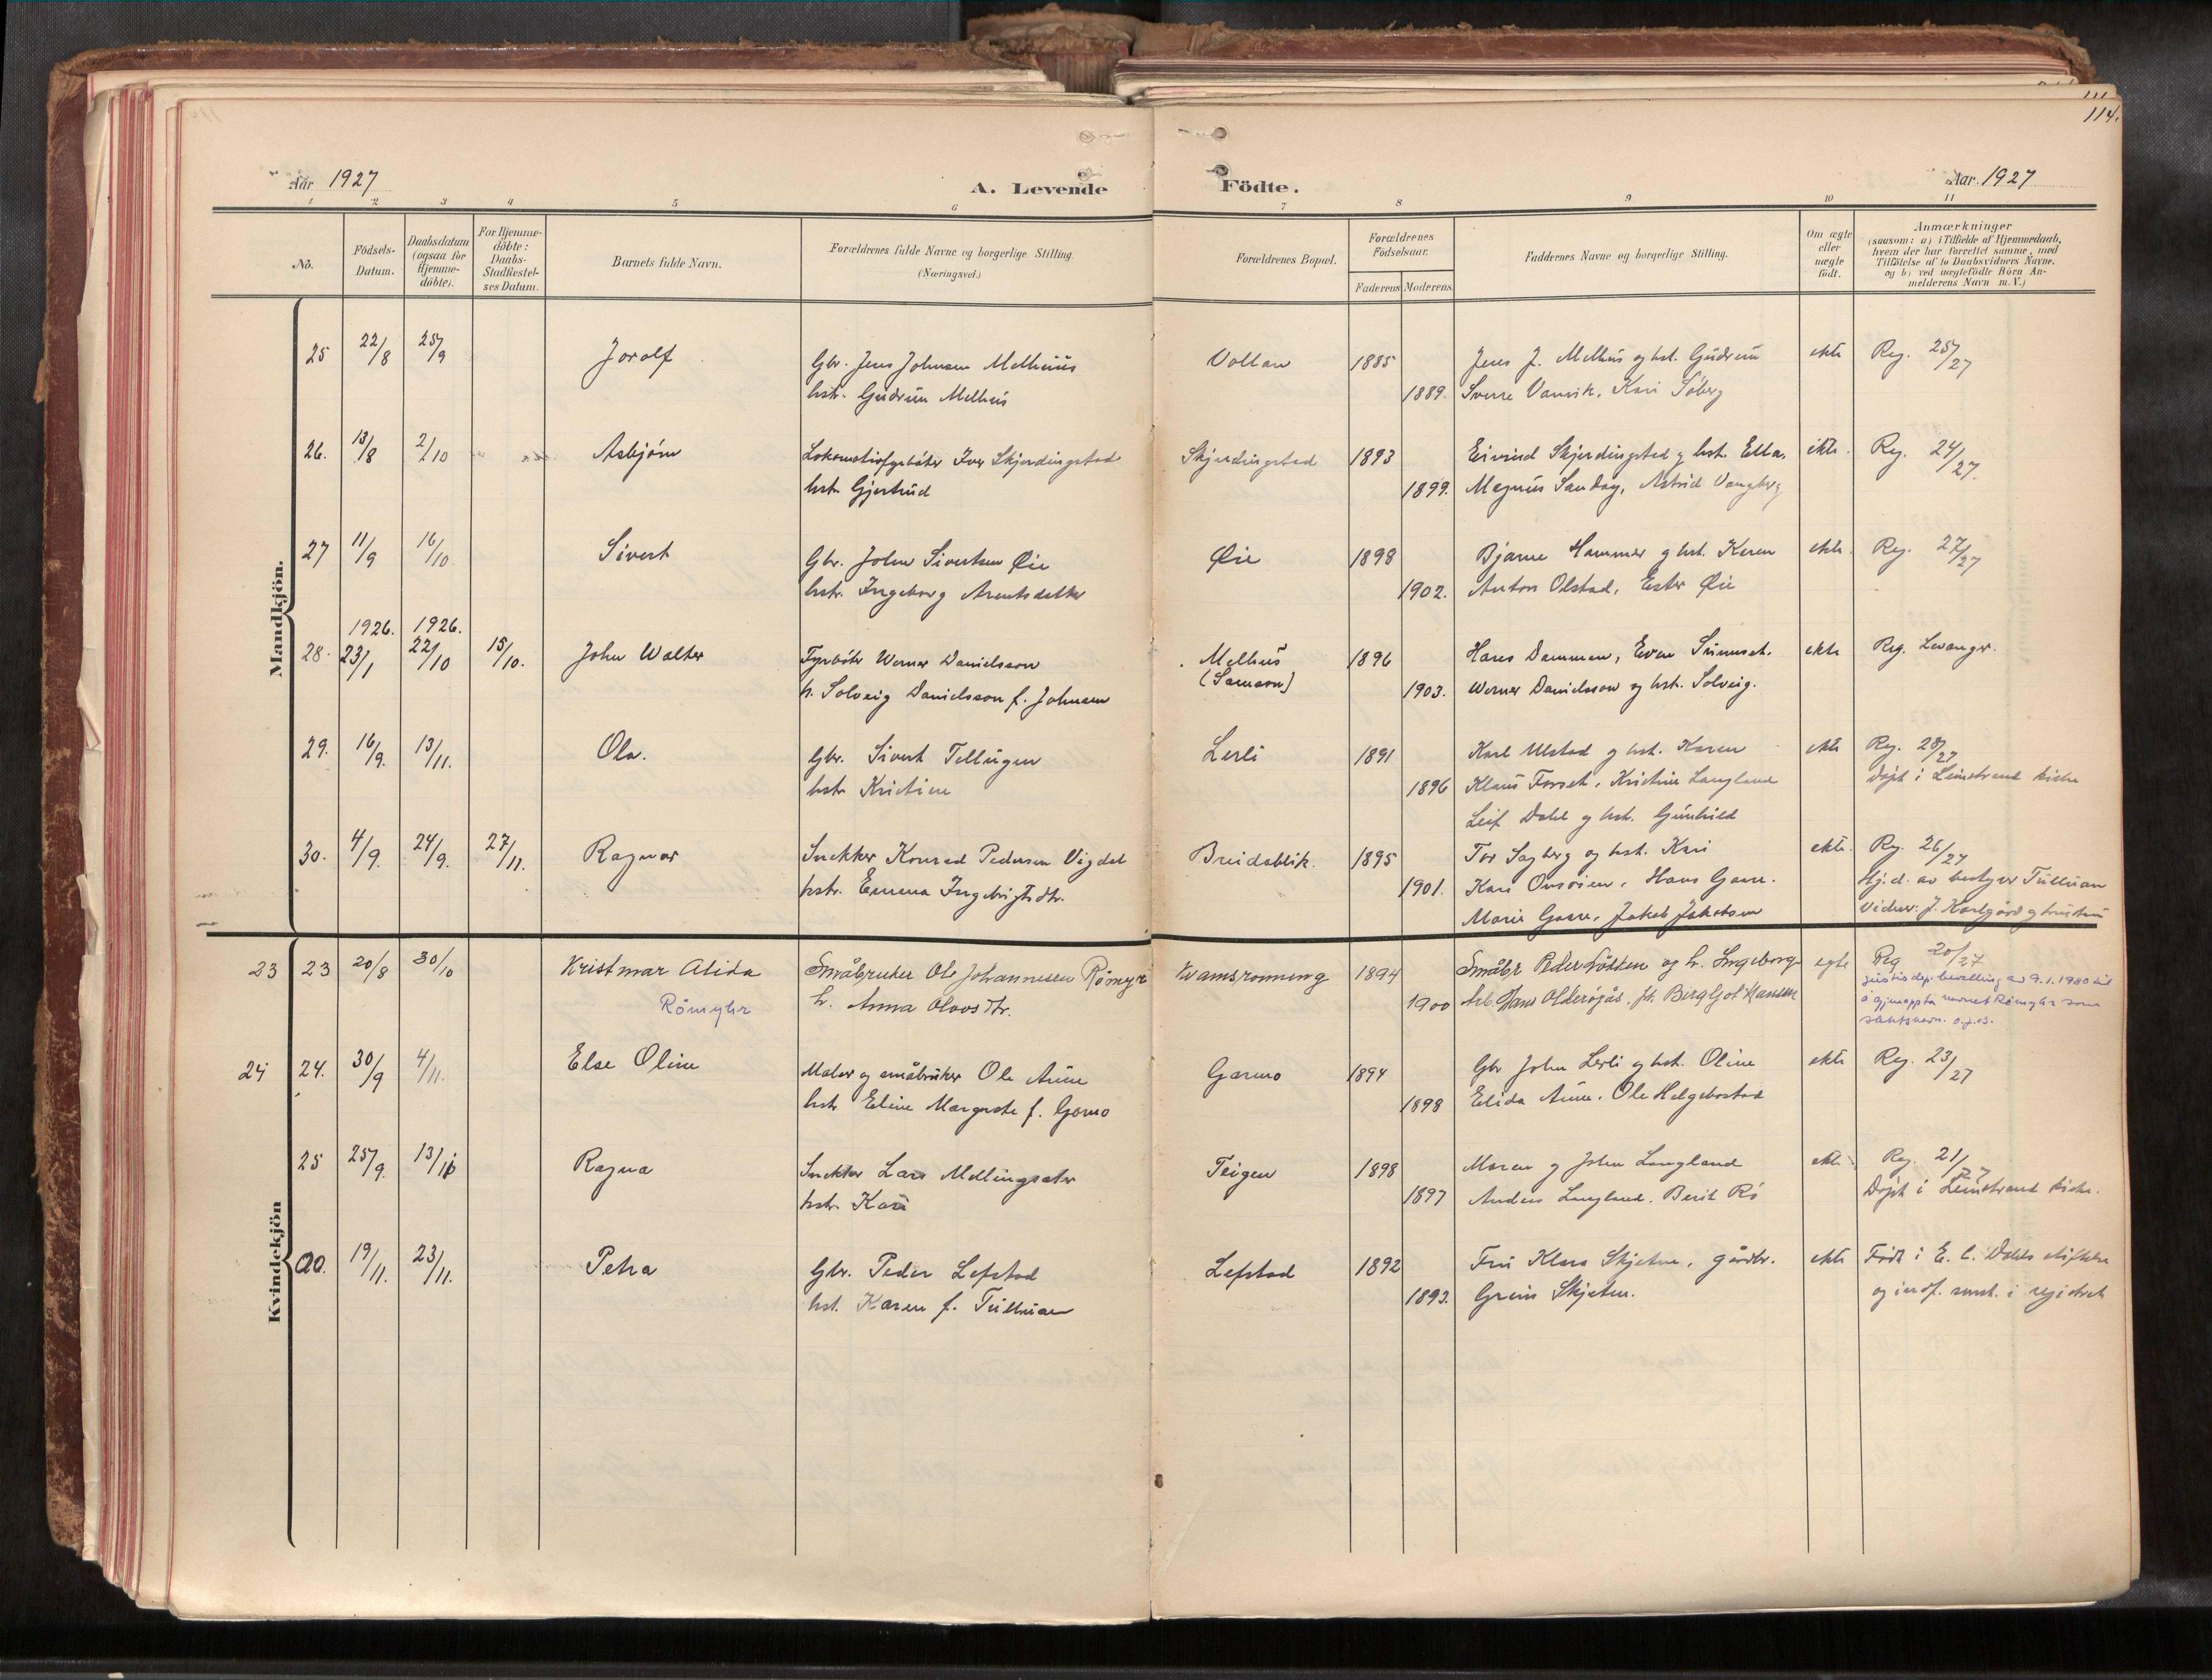 114.
Aar 1927
A. Levende Födte.
Aar 1927
1 2 3 4 5 6 7 8 9 10 11
No.
Födsels-Datum.
Daabsdatum (ogsaa for Hjemme-döbte).
For Hjemme-döbte: Daabs-Stadfæstel-ses Datum.
Barnets fulde Navn.
Forældrenes fulde Navne og borgerlige Stilling.
(Næringsvei.)
Forældrenes Bopæl.
Forældrenes Födselsaar.
Faderens Moderens
Faddernes Navne og borgerlige Stilling.
Om ægte eller uægte födt.
Anmærkninger
(saasom: a) i Tilfælde af Hjemmedaab,
hvem der har forrettet samme, med
Tilföielse af to Daabsvidners Navne.
og b) ved uægtefödte Börn An-
melderens Navn m. V.)
Mandkjön.
25 22/8 25/9 Jorolf Gbr. Jens Johnsen Melhuus Vollan 1885 Jens J. Melhus og hst. Gudrun ekte Reg. 25/27
hstr. Gudrun Melhus 1889. Sverre Vanvik, Kari Söberg
26. 13/8 2/10 Asbjörn Lokomotivfyrböter Iver Skjerdingstad Skjerdingstad 1893 Eivind Skjerdingstad og hst. Ella. ekte. Reg. 24/27.
hstr. Gjertrud 1899. Magnus Sandøy, Astrid Vangberg
27 11/9 16/10 Sivert Gbr. John Sivertsen Øie Øie 1898 Bjarne Hammer og hst. Karen ekte. Reg. 27/27
hstr. Ingeborg Arentsdatter 1902. Anton Olstad, Ester Øie
1926. 1926.
28. 23/1 22/10 15/10. John Walter Fyrböter Werner Danielsson Melhus 1896 Hans Dammen, Even ekte Reg. Levanger.
h. Solveig Danielsson f. Johnsen (Samson) 1903. Werner Danielsson og hst. Solveig.
29. 16/9. 13/11. Ola. Gbr. Sivert Tellugen Lerli 1891 Karl Ulstad og hst. Karen ekte Reg. 28/27
hstr Kristine 1896 Klaus Forset, Kristine Langland döpt i Leinstrand kirke
Leif Dahl og hst. Gunhild
30. 4/9. 24/9. 27/11. Ragnar Snekker Konrad Pedersen Vigdal Breidablik. 1895 Tor Sagberg og hst. Kari ekte. Reg. 26/27
hstr. Emma Ingebrigtsdtr. 1901. Kari Onsöien, Hans Gaare. Hj.d. av bestyrer Tilluan
Marie Gaare, Jakob Jakobsen
Kvindekjön
23 23 20/8 30/10 Kristmar Alida Småbruker Ole Johannesen Römyr Kvamsrönning 1894 Småbr Peder Løkken og h. Ingeborg egte Reg 20/27
Römyhr h. Anna Olavsdtr. 1900 Arb. Hans Olderøjås, fr. Bergljot Hansen
justisdep. bevilling av 9.1.1980 til
å gjenoppta navnet Römyhr som
slektsnavn.
24 24. 30/9 4/11. Else Oline Maler og småbruker Ole Aune Garmo 1894 Gbr John Lerli og hst. Oline ekte Reg. 23/27
hstr Eline Margrete f. Garmo 1898 Elida Aune, Ole Helgebostad
25 25/9. 13/11 Ragna Snekker Lars Mellingsæter Teigen 1898 Maren og John Langland ekte Reg. 21/27
hstr Kari 1897 Anders Langland. Berit Rö Döpt i Leinstrand kirke.
a0. 19/11. 23/11. Petra Gbr. Peder Lefstad Lefstad 1892 Fru Klara Skjetne, gårdbr. ekte Født i E. C. Dahls stiftelse
hst. Karen f. Tilluan 1893. Grim Skjetne. og indf. smst. i registret